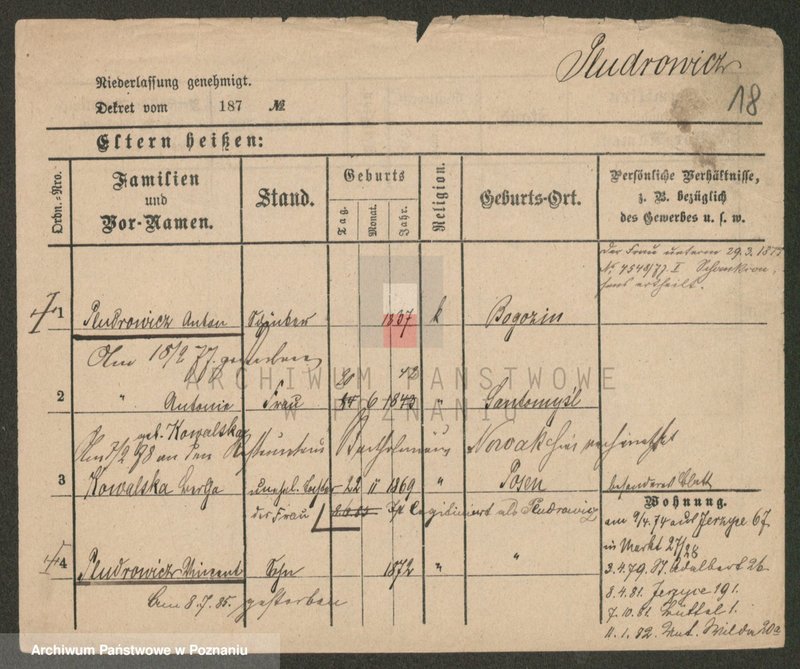 Pludrowicz
18
Niederlassung genehmigt.
Dekret vom 187 №
Eltern heißen:
Ordn.-Nro.
Familien und Vor-Namen.
Stand.
Geburts
Tag.
Monat.
Jahr.
Religion.
Geburts-Ort.
Persönliche Verhältnisse, z. B. bezüglich des Gewerbes u. s. w.
der Frau unterm 29.3.1877
No 4548/77 I
ertheilt.
1 Pludrowicz Anton Schänker 1837 k Bogozin
Am 18/2 77. gestorben
20 42
2 " Antonie Frau 14 6 1843 " Santomysl
geb. Kowalska
Am 7/2 78 an den Restaurateur Bartholomäus Nowak hier verheirathet
3 Kowalska unehel. Tochter 22 11 1869 " Posen besonderes Blatt
der Frau Ist legitimiert als Pludrowicz
4 Pludrowicz Vincent Sohn 1872 " "
Am 8.7.85. gestorben
Wohnung.
am 9/4.74 aus Jerzyce 67.
in Markt 27/28
3.4.79. St. Adalbert 26
8.4.81. Jerzyce 191.
7.10.81. Büttel 1.
11.1.82. Unt. Wilda 20a
ARCHIWUM PAŃSTWOWE
W POZNANIU
Archiwum Państwowe w Poznaniu